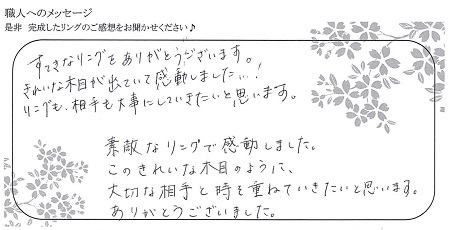 職人へのメッセージ
是非 完成したリングのご感想をお聞かせください♪
すてきなリングをありがとうございます。
きれいな木目が出ていて感動しました…!
リングも、相手も大事にしていきたいと思います。
素敵なリングで感動しました。
このきれいな木目のように、
大切な相手と時を重ねていきたいと思います。
ありがとうございました。